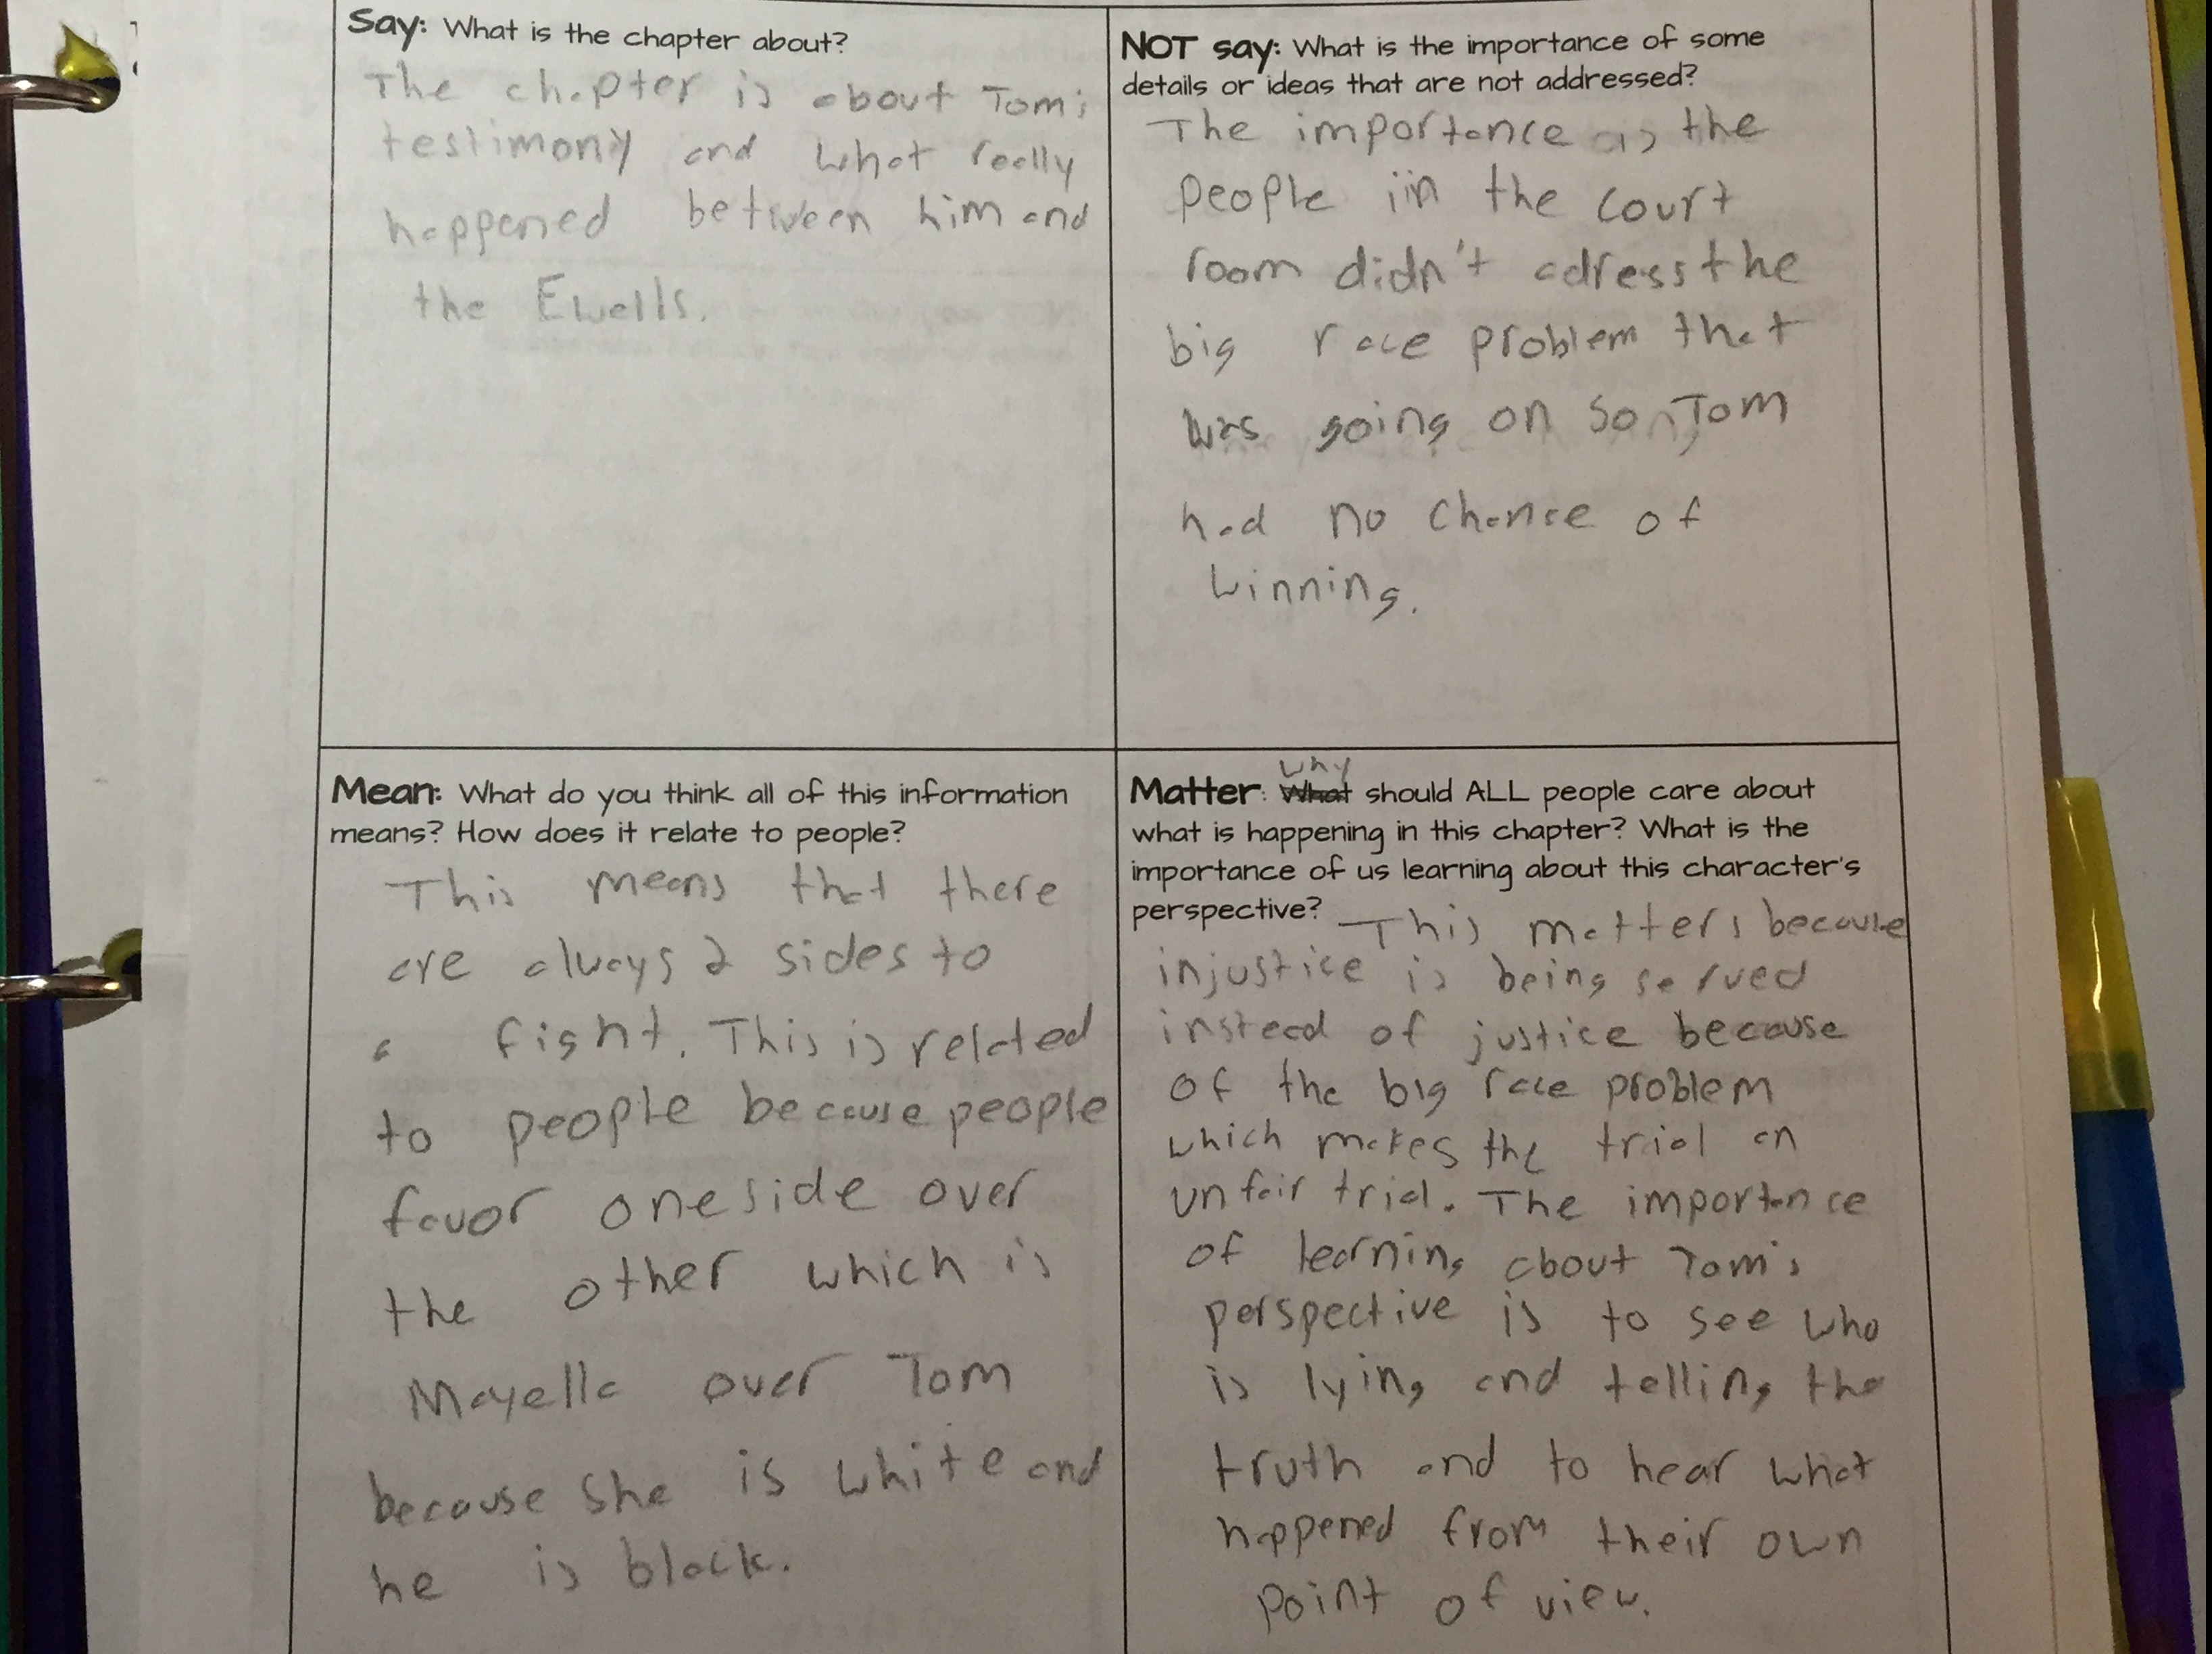 Say: What is the chapter about?
The chapter is about Tom's
testimony and what really
happened between him and
the Ewells.
NOT say: What is the importance of some
details or ideas that are not addressed?
The importance is the
people iin the court
room didn't adress the
big race problem that
was going on so Tom
had no chance of
winning.
Mean: What do you think all of this information
means? How does it relate to people?
This means that there
are always 2 sides to
a fight. This is related
to people because people
favor one side over
the other which is
Mayella over Tom
because she is white and
he is black.
why
Matter: What should ALL people care about
what is happening in this chapter? What is the
importance of us learning about this character's
perspective? This matters because
injustice is being served
instead of justice because
of the big race problem
which makes the trial an
unfair trial. The importance
of learning about Tom's
perspective is to see who
is lying and telling the
truth and to hear what
happened from their own
point of view.